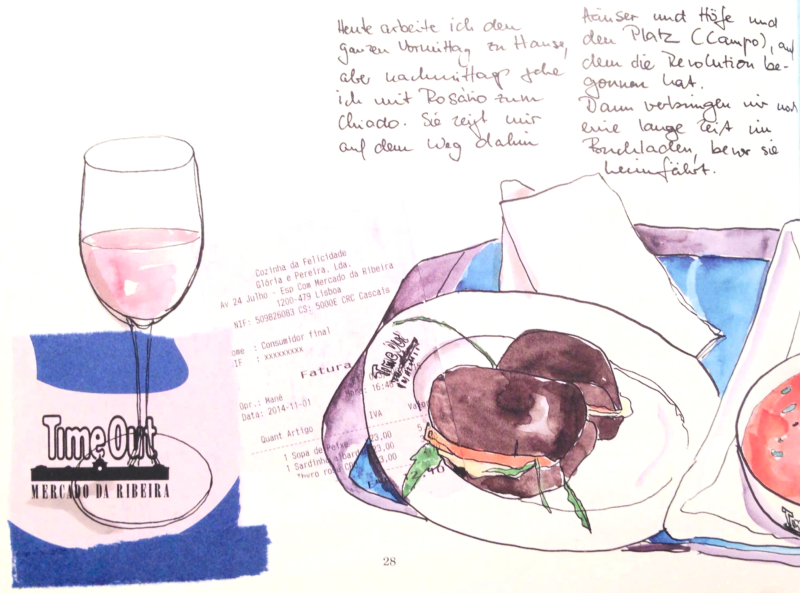 Heute arbeite ich den
ganzen Vormittag zu Hause,
aber nachmittags gehe
ich mit Rosário zum
Chiado. Sie zeigt mir
auf dem Weg dahin
Häuser und Höfe und
den Platz (Campo), auf
dem die Revolution be-
gonnen hat.
Dann verbringen wir noch
eine lange Zeit im
Buchladen, bevor sie
heimfährt.
Cozinha da Felicidade
Glória e Pereira, Lda.
Av 24 Julho - Esp Com Mercado da Ribeira
1200-479 Lisboa
NIF: 509826083 CS: 5000E CRC Cascais
ome : Consumidor final
IF : xxxxxxxxx
Fatura
Opr.: Mané
16:4
Data: 2014-11-01
IVA
Quant Artigo
1 Sopa de Peixe 23,00
1 Sardinha
Time Out
MERCADO DA RIBEIRA
Time Out
28